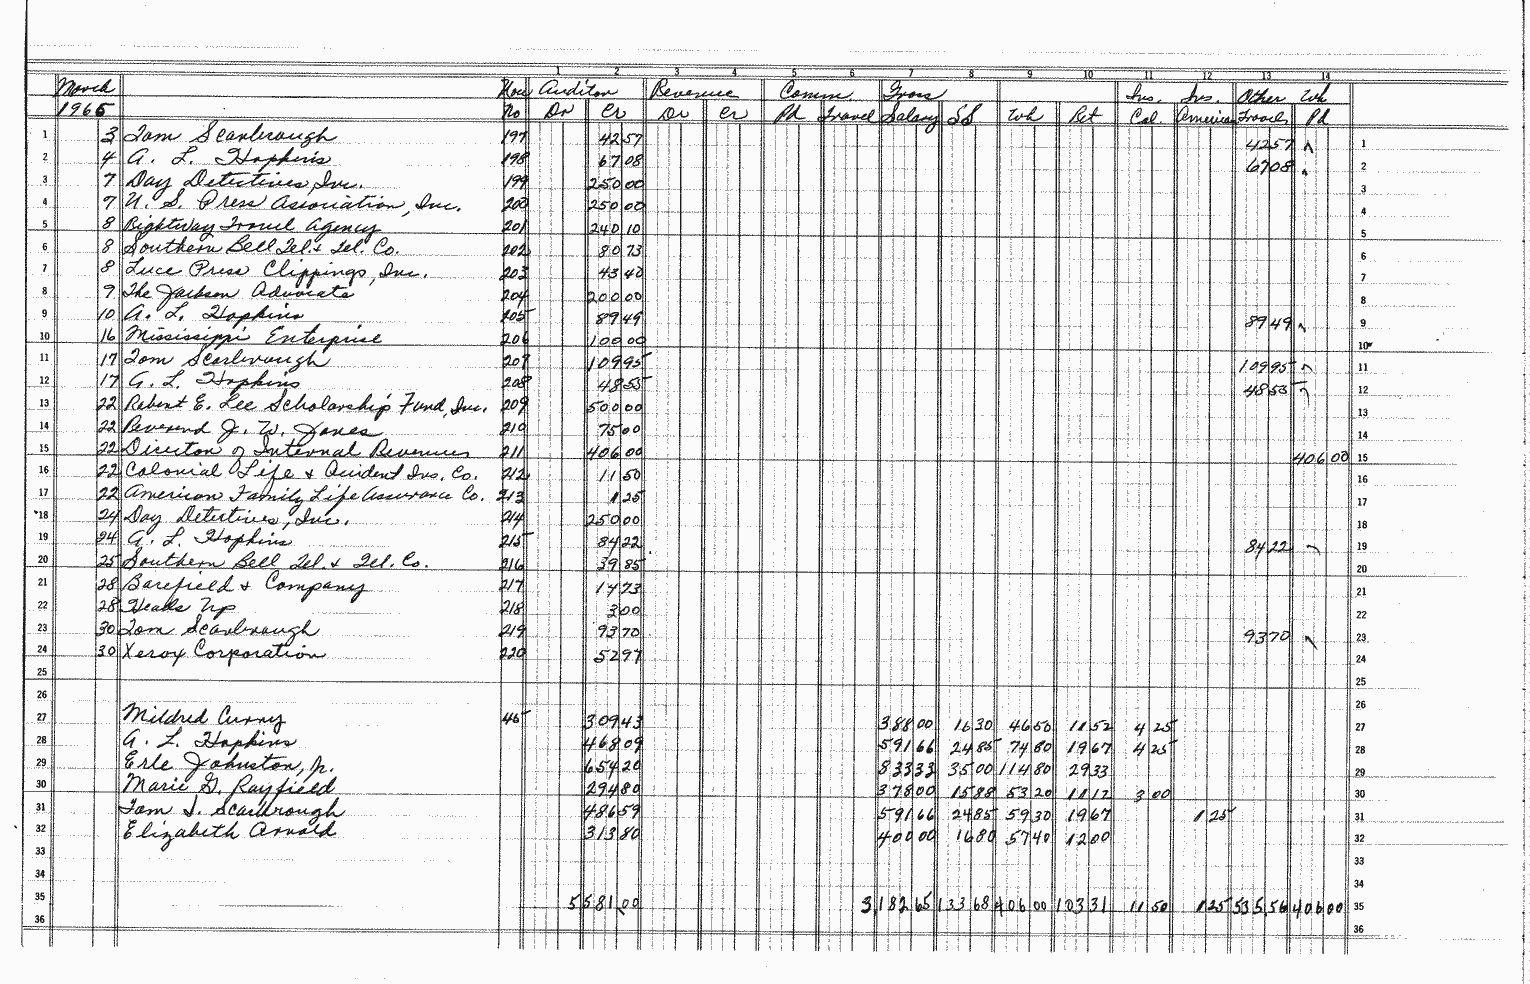 1 2 3 4 5 6 7 8 9 10 11 12 13 14
March Vou Auditor Revenue Comm. Gross Ins. Ins. Other Wh
1965 No Dr Cr Dr Cr Pd Travel Salary SS Wh Ret Col American Travel Pd
1 3 Tom Scarbrough 197 42 57 42 57 1
2 4 A. L. Hopkins 198 67 08 67 08 2
3 7 Day Detectives, Inc. 199 250 00 3
4 7 U. S. Press Association, Inc. 200 250 00 4
5 8 Rightway Travel Agency 201 240 10 5
6 8 Southern Bell Tel. & Tel. Co. 202 80 73 6
7 8 Luce Press Clippings, Inc. 203 43 40 7
8 9 The Jackson Advocate 204 200 00 8
9 10 A. L. Hopkins 205 89 49 89 49 9
10 16 Mississippi Enterprise 206 100 00 10
11 17 Tom Scarbrough 207 109 95 109 95 11
12 17 A. L. Hopkins 208 48 55 48 55 12
13 22 Robert E. Lee Scholarship Fund, Inc. 209 500 00 13
14 22 Reverend J. W. Jones 210 75 00 14
15 22 Director of Internal Revenues 211 406 00 406 00 15
16 22 Colonial Life & Accident Ins. Co. 212 11 50 16
17 22 American Family Life Assurance Co. 213 1 25 17
18 24 Day Detectives, Inc. 214 250 00 18
19 24 A. L. Hopkins 215 84 22 84 22 19
20 25 Southern Bell Tel. & Tel. Co. 216 39 85 20
21 28 Barefield & Company 217 14 73 21
22 28 Heads Up 218 3 00 22
23 30 Tom Scarbrough 219 93 70 93 70 23
24 30 Xerox Corporation 220 52 97 24
25 25
26 26
27 Mildred Curry 45 309 43 388 00 16 30 46 50 11 52 4 25 27
28 A. L. Hopkins 468 09 591 66 24 85 74 80 19 67 4 25 28
29 Erle Johnston, Jr. 654 20 833 33 35 00 114 80 29 33 29
30 Marie G. Rayfield 294 80 378 00 15 88 53 20 11 12 3 00 30
31 Tom J. Scarbrough 486 59 591 66 24 85 59 30 19 67 1 25 31
32 Elizabeth Arnold 313 80 400 00 16 80 57 40 12 00 32
33 33
34 34
35 5 581 00 3,182 65 133 68 406 00 103 31 11 50 1 25 535,56 406 00 35
36 36